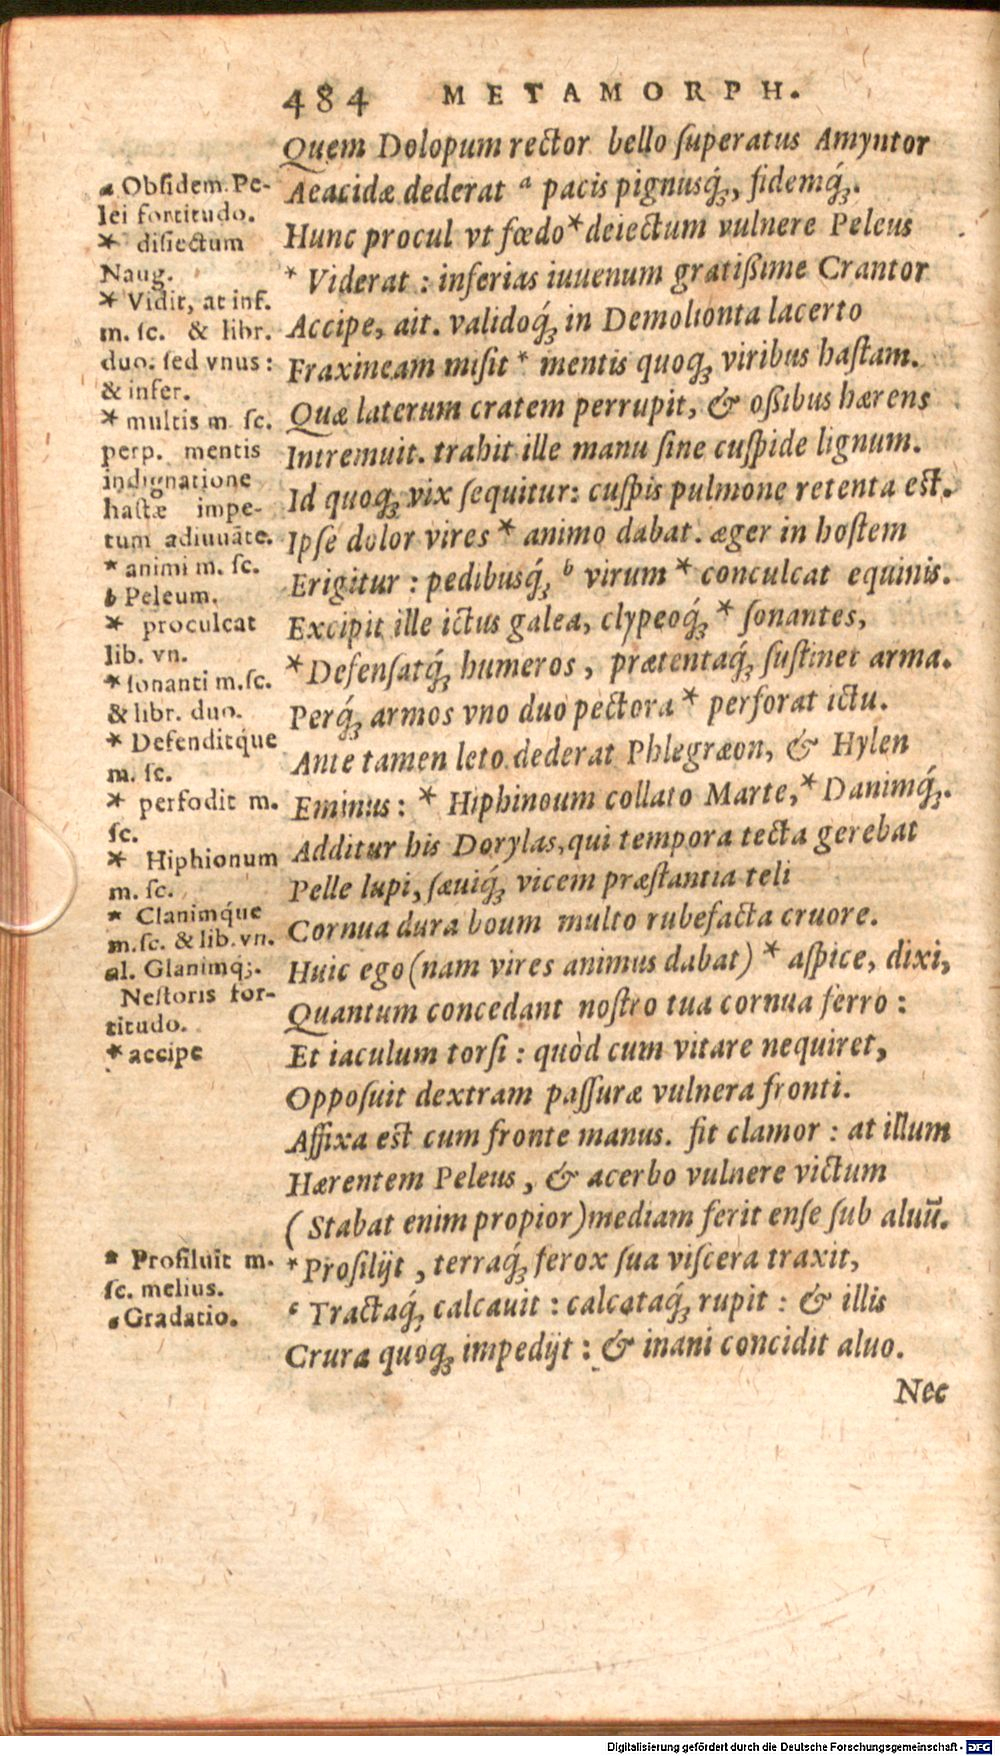 484 METAMORPH.
Quem Dolopum rector bello ſuperatus Amyntor
Aeacidæ dederat a pacis pignusq́ꝫ, fidemq́ꝫ.
Hunc procul vt fœdo * deiectum vulnere Peleus
* Viderat : inferias iuuenum gratißime Crantor
Accipe, ait. validoq́ꝫ in Demolionta lacerto
Fraxineam miſit * mentis quoqꝫ viribus haſtam.
Quæ laterum cratem perrupit, & oßibus hærens
Intremuit. trahit ille manu ſine cuſpide lignum.
Id quoqꝫ vix ſequitur: cuſpis pulmone retenta eſt.
Ipſe dolor vires * animo dabat. æger in hoſtem
Erigitur : pedibusq́ꝫ b virum * conculcat equinis.
Excipit ille ictus galea, clypeoq́ꝫ * ſonantes,
* Defenſatq́ꝫ humeros, prætentaq́ꝫ ſuſtinet arma.
Perq́ꝫ armos vno duo pectora * perforat ictu.
Ante tamen leto dederat Phlegræon, & Hylen
Eminus: * Hiphinoum collato Marte, * Danimq́ꝫ.
Additur his Dorylas, qui tempora tecta gerebat
Pelle lupi, ſæuiq́ꝫ vicem præſtantia teli
Cornua dura boum multo rubefacta cruore.
Huic ego (nam vires animus dabat) * aſpice, dixi,
Quantum concedant noſtro tua cornua ferro :
Et iaculum torſi : quòd cum vitare nequiret,
Oppoſuit dextram paſſuræ vulnera fronti.
Affixa eſt cum fronte manus. fit clamor : at illum
Hærentem Peleus, & acerbo vulnere victum
(Stabat enim propior) mediam ferit enſe ſub aluũ.
* Proſilijt, terraq́ꝫ ferox ſua viſcera traxit,
c Tractaq́ꝫ calcauit : calcataq́ꝫ rupit : & illis
Crura quoqꝫ impedijt : & inani concidit aluo.
Nec
a Obſidem. Pe-
lei fortitudo.
* diſiectum
Naug.
* Vidit, at inf.
m. ſc. & libr.
duo. ſed vnus:
& infer.
* multis m ſc.
perp. mentis
indignatione
haſtæ impe-
tum adiuuāte.
* animi m. ſc.
b Peleum.
* proculcat
lib. vn.
* ſonanti m. ſc.
& libr. duo.
* Defenditq́ue
m. ſc.
* perfodit m.
ſc.
* Hiphionum
m. ſc.
* Clanimq́ue
m. ſc. & lib. vn.
al. Glanimqꝫ.
Neſtoris for-
titudo.
* accipe
* Profiluit m.
ſc. melius.
c Gradatio.
Digitalisierung gefördert durch die Deutsche Forschungsgemeinschaft - DFG